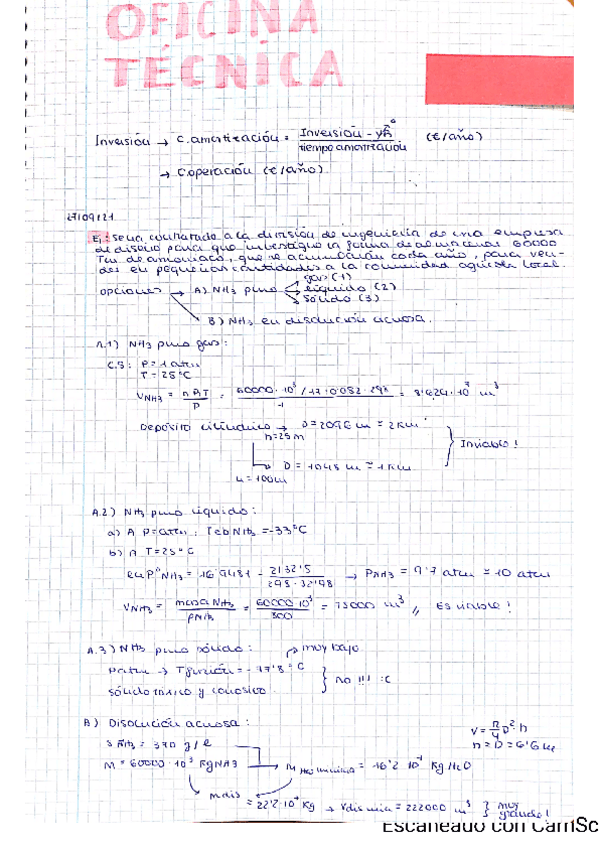 OFICINA
TÉCNICA
Inversión → C. amortización = Inversión - VR⁰ / tiempo amortización (€/año)
→ C. operación (€/año)
27/09/21
E₁: Se ha contratado a la división de ingeniería de una empresa
de diseño para que investigue la forma de almacenar 60000
Tm de amoniaco, que se acumularán cada año, para ven-
der en pequeñas cantidades a la comunidad agrícola local.
opciones → A) NH₃ puro gas (1)
líquido (2)
sólido (3)
B) NH₃ en disolución acuosa.
A.1) NH₃ puro gas:
C.S: P = 1 atm
T = 25°C
V NH₃ = nRT / P = 60000·10³/17·0'082·298 / 1 = 8'624·10⁷ m³
Depósito cilíndrico → D = 2096 m ≈ 2 Km
h=25m
Inviable!
→ D = 1048 m ≈ 1 Km
h = 100m
A.2) NH₃ puro líquido:
a) A P=atm; Teb NH₃ = -33°C
b) A T=25°C
ln P° NH₃ = 16'9481 - 2132'5 / 298-32'98 → P NH₃ = 9'7 atm ≈ 10 atm
V NH₃ = masa NH₃ / ρ NH₃ = 60000·10³ / 800 = 75000 m³ // Es viable!
A.3) NH₃ puro sólido: muy bajo
Patm → Tfusión = -77'8°C
sólido tóxico y corrosivo } no !!! :C
B) Disolución acuosa:
S NH₃ = 370 g/l
V = π/4 D²·h
h = D = 6'6 m
M = 60000·10³ Kg NH₃ → M H₂O mínima = 16'2·10⁷ Kg H₂O
M dis = 22'2·10⁷ Kg → V dis min = 222000 m³ } muy
grande!
Escaneado con CamSc